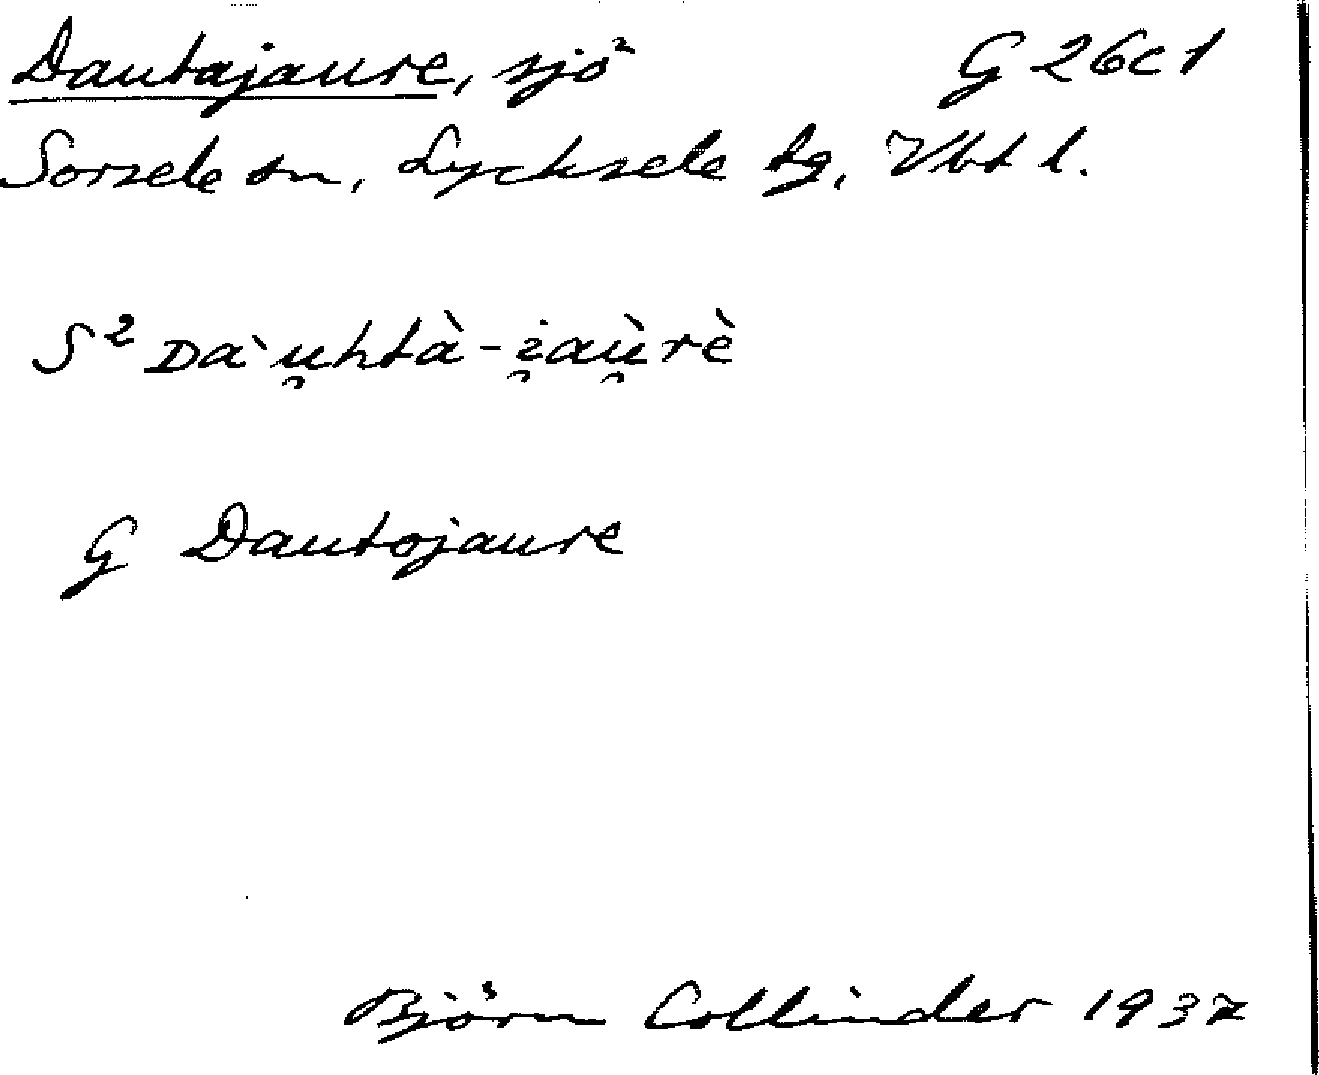 Dautajaure, sjö G 26c1
Sorsele sn, Lycksele tg, Vbt l.
S² Dàu̯htà-i̯aù̯rè
G Dautojaure
Björn Collinder 1937